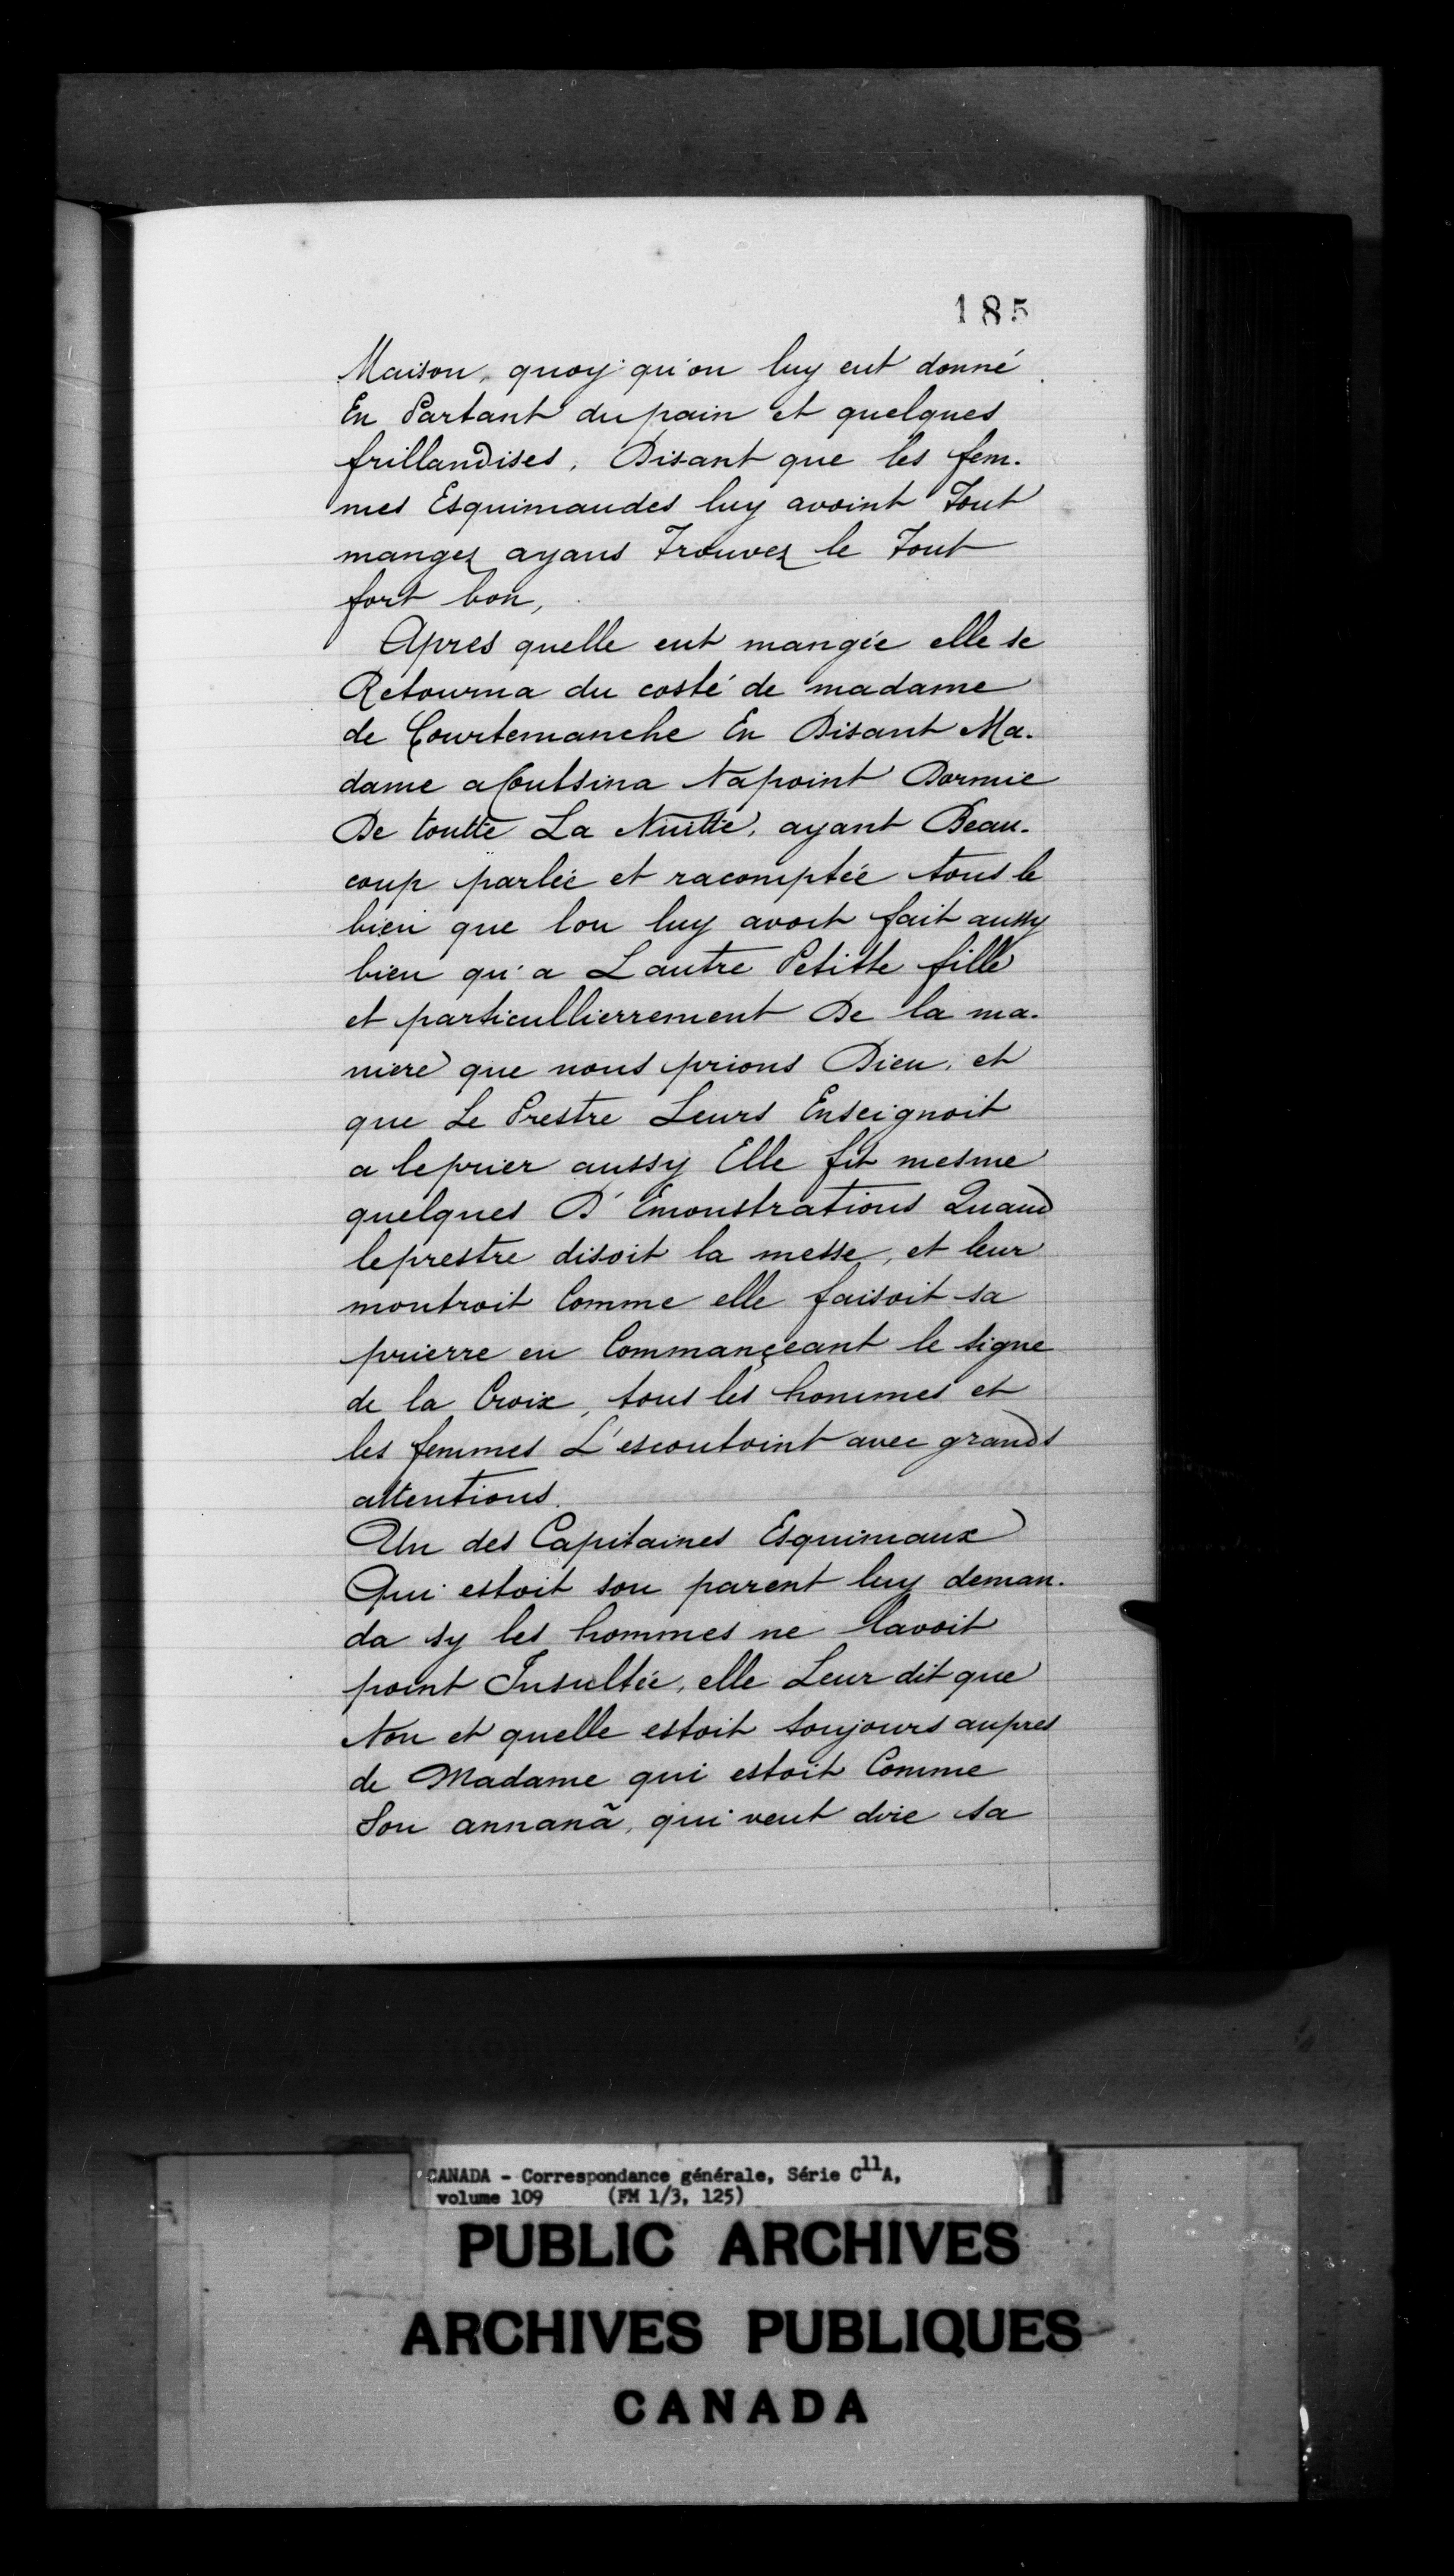 185
Maison, quoy qu'on luy eut donné
En Partant du pain et quelques
frillandises, Disant que les fem-
mes Esquimaudes luy avoint Tout
mangez ayans Trouvez le Tout
fort bon,
Apres quelle eut mangée elle se
Retourna du costé de madame
de Courtemanche En Disant Ma-
dame acoutsina Napoint Dormie
De toutte La Nuitte, ayant Beau-
coup parlée et racomptée tous le
bien que lon luy avoit fait aussy
bien qu'a Lautre Petitte fille
et particullierrement De la ma-
niere que nous prions Dieu, et
que Le Prestre Leurs Enseignoit
a leprier aussy Elle fit mesme
quelques D'Emonstrations Quand
leprestre disoit la messe, et leur
montroit Comme elle faisoit sa
prierre en Commançeant le signe
de la Croix, tous les hommes et
les femmes L'escoutoint avec grands
attentions.
Un des Capitaines Esquimaux
Qui estoit son parent luy deman-
da sy les hommes ne lavoit
point Insultée, elle Leur dit que
Non et quelle estoit toujours aupres
de Madame qui estoit Comme
Son annanã, qui veut dire sa
CANADA - Correspondance générale, Série C11A,
volume 109 (FM 1/3, 125)
PUBLIC ARCHIVES
ARCHIVES PUBLIQUES
CANADA